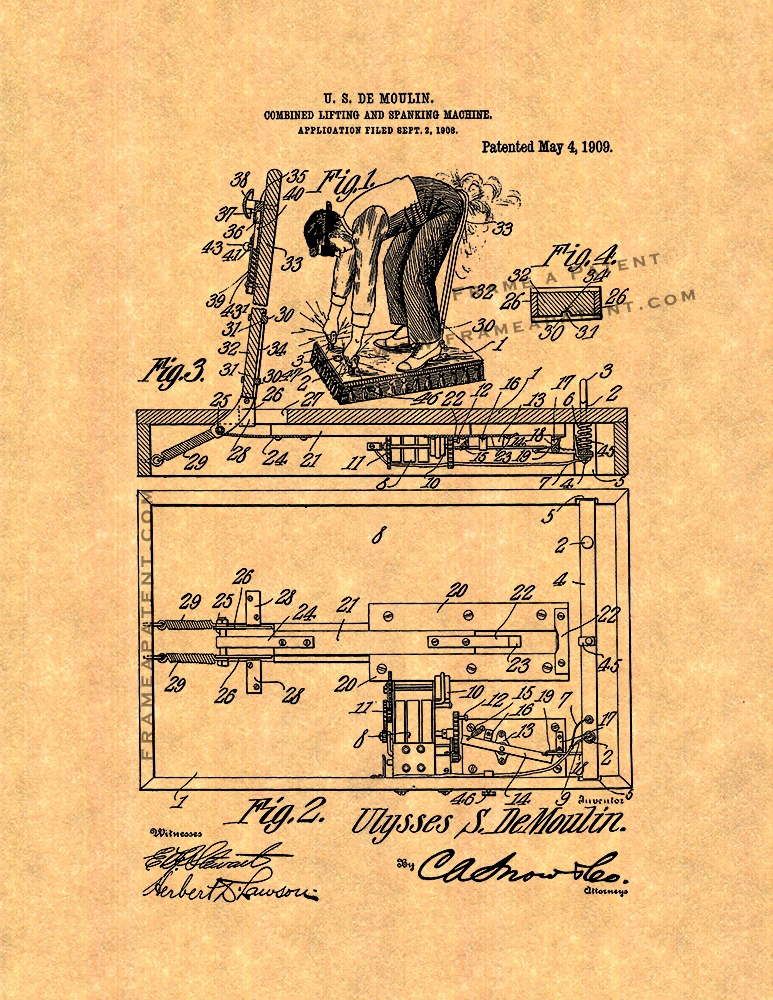 U. S. DE MOULIN.
COMBINED LIFTING AND SPANKING MACHINE.
APPLICATION FILED SEPT. 2, 1908.
Patented May 4, 1909.
Fig.1.
38
35
40
37
36
43
41
33
39
43¹
30
31
32
34
31
30
33
32
30
1
47
3
2
46
Fig.4.
32
34
26
26
30
31
FRAME A PATENT
FRAMEAPATENT.COM
Fig.3.
25
26
27
22
12
16
1
13
17
6
3
2
29
28
24
21
11
8
10
15
23
14
18
19
7
4
45
5
8
5
2
4
29
25
26
28
24
21
20
22
22
23
45
29
26
28
20
10
12
15
16
19
7
11
8
13
17
2
18
1
46
14
9
5
FRAMEAPATENT.COM
Fig.2.
Inventor
Ulysses S. DeMoulin.
Witnesses
E. F. Stewart
Herbert D. Lawson.
By C A Snow & Co.
Attorneys